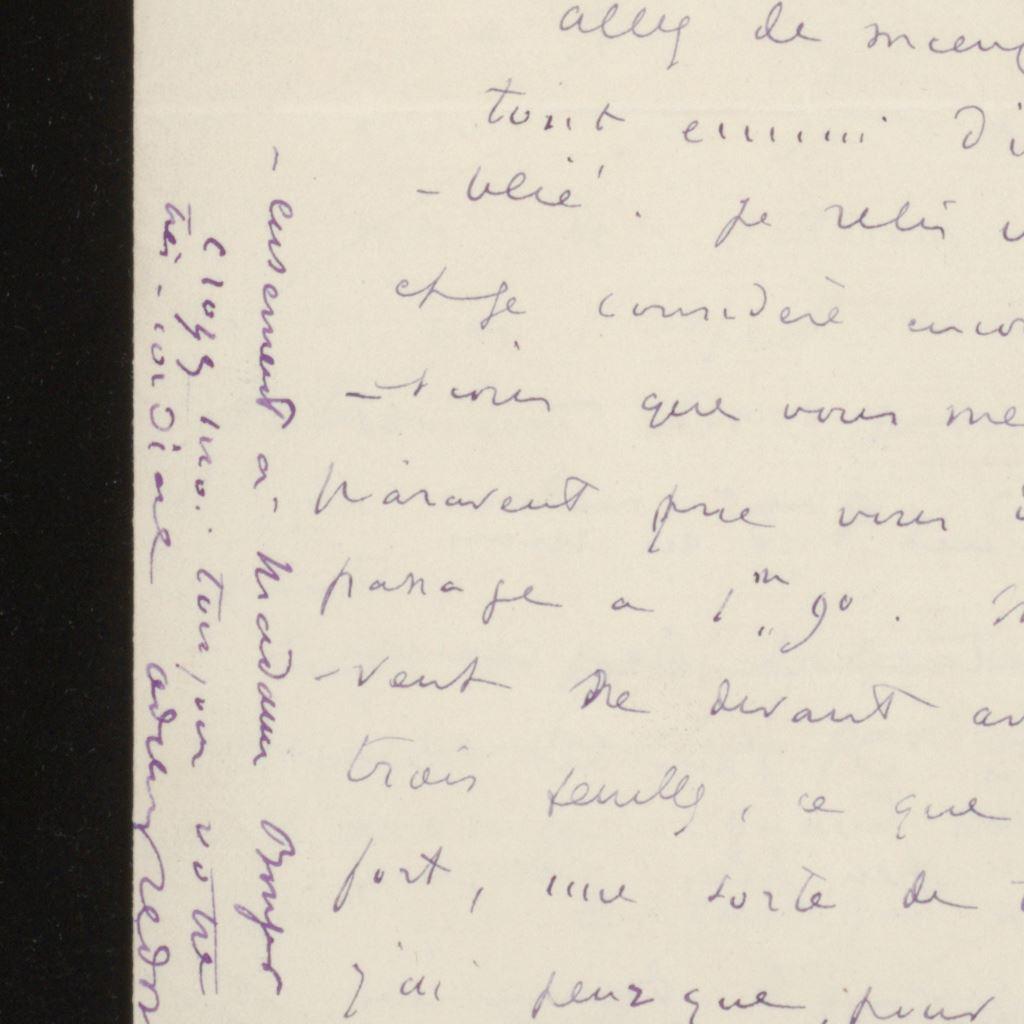 allez de mieux
tout ennui d'i
-blié. Je relis v
et je considère enco
-tions que vous me
paravent que vous d
passage à 1m,,90.
-vent de devant av
trois feuilles, ce que
fort, une sorte de t
j'ai peur que, pour
-eusement à Madame Bonger
croyez moi toujours votre
très-cordial
odilon redon